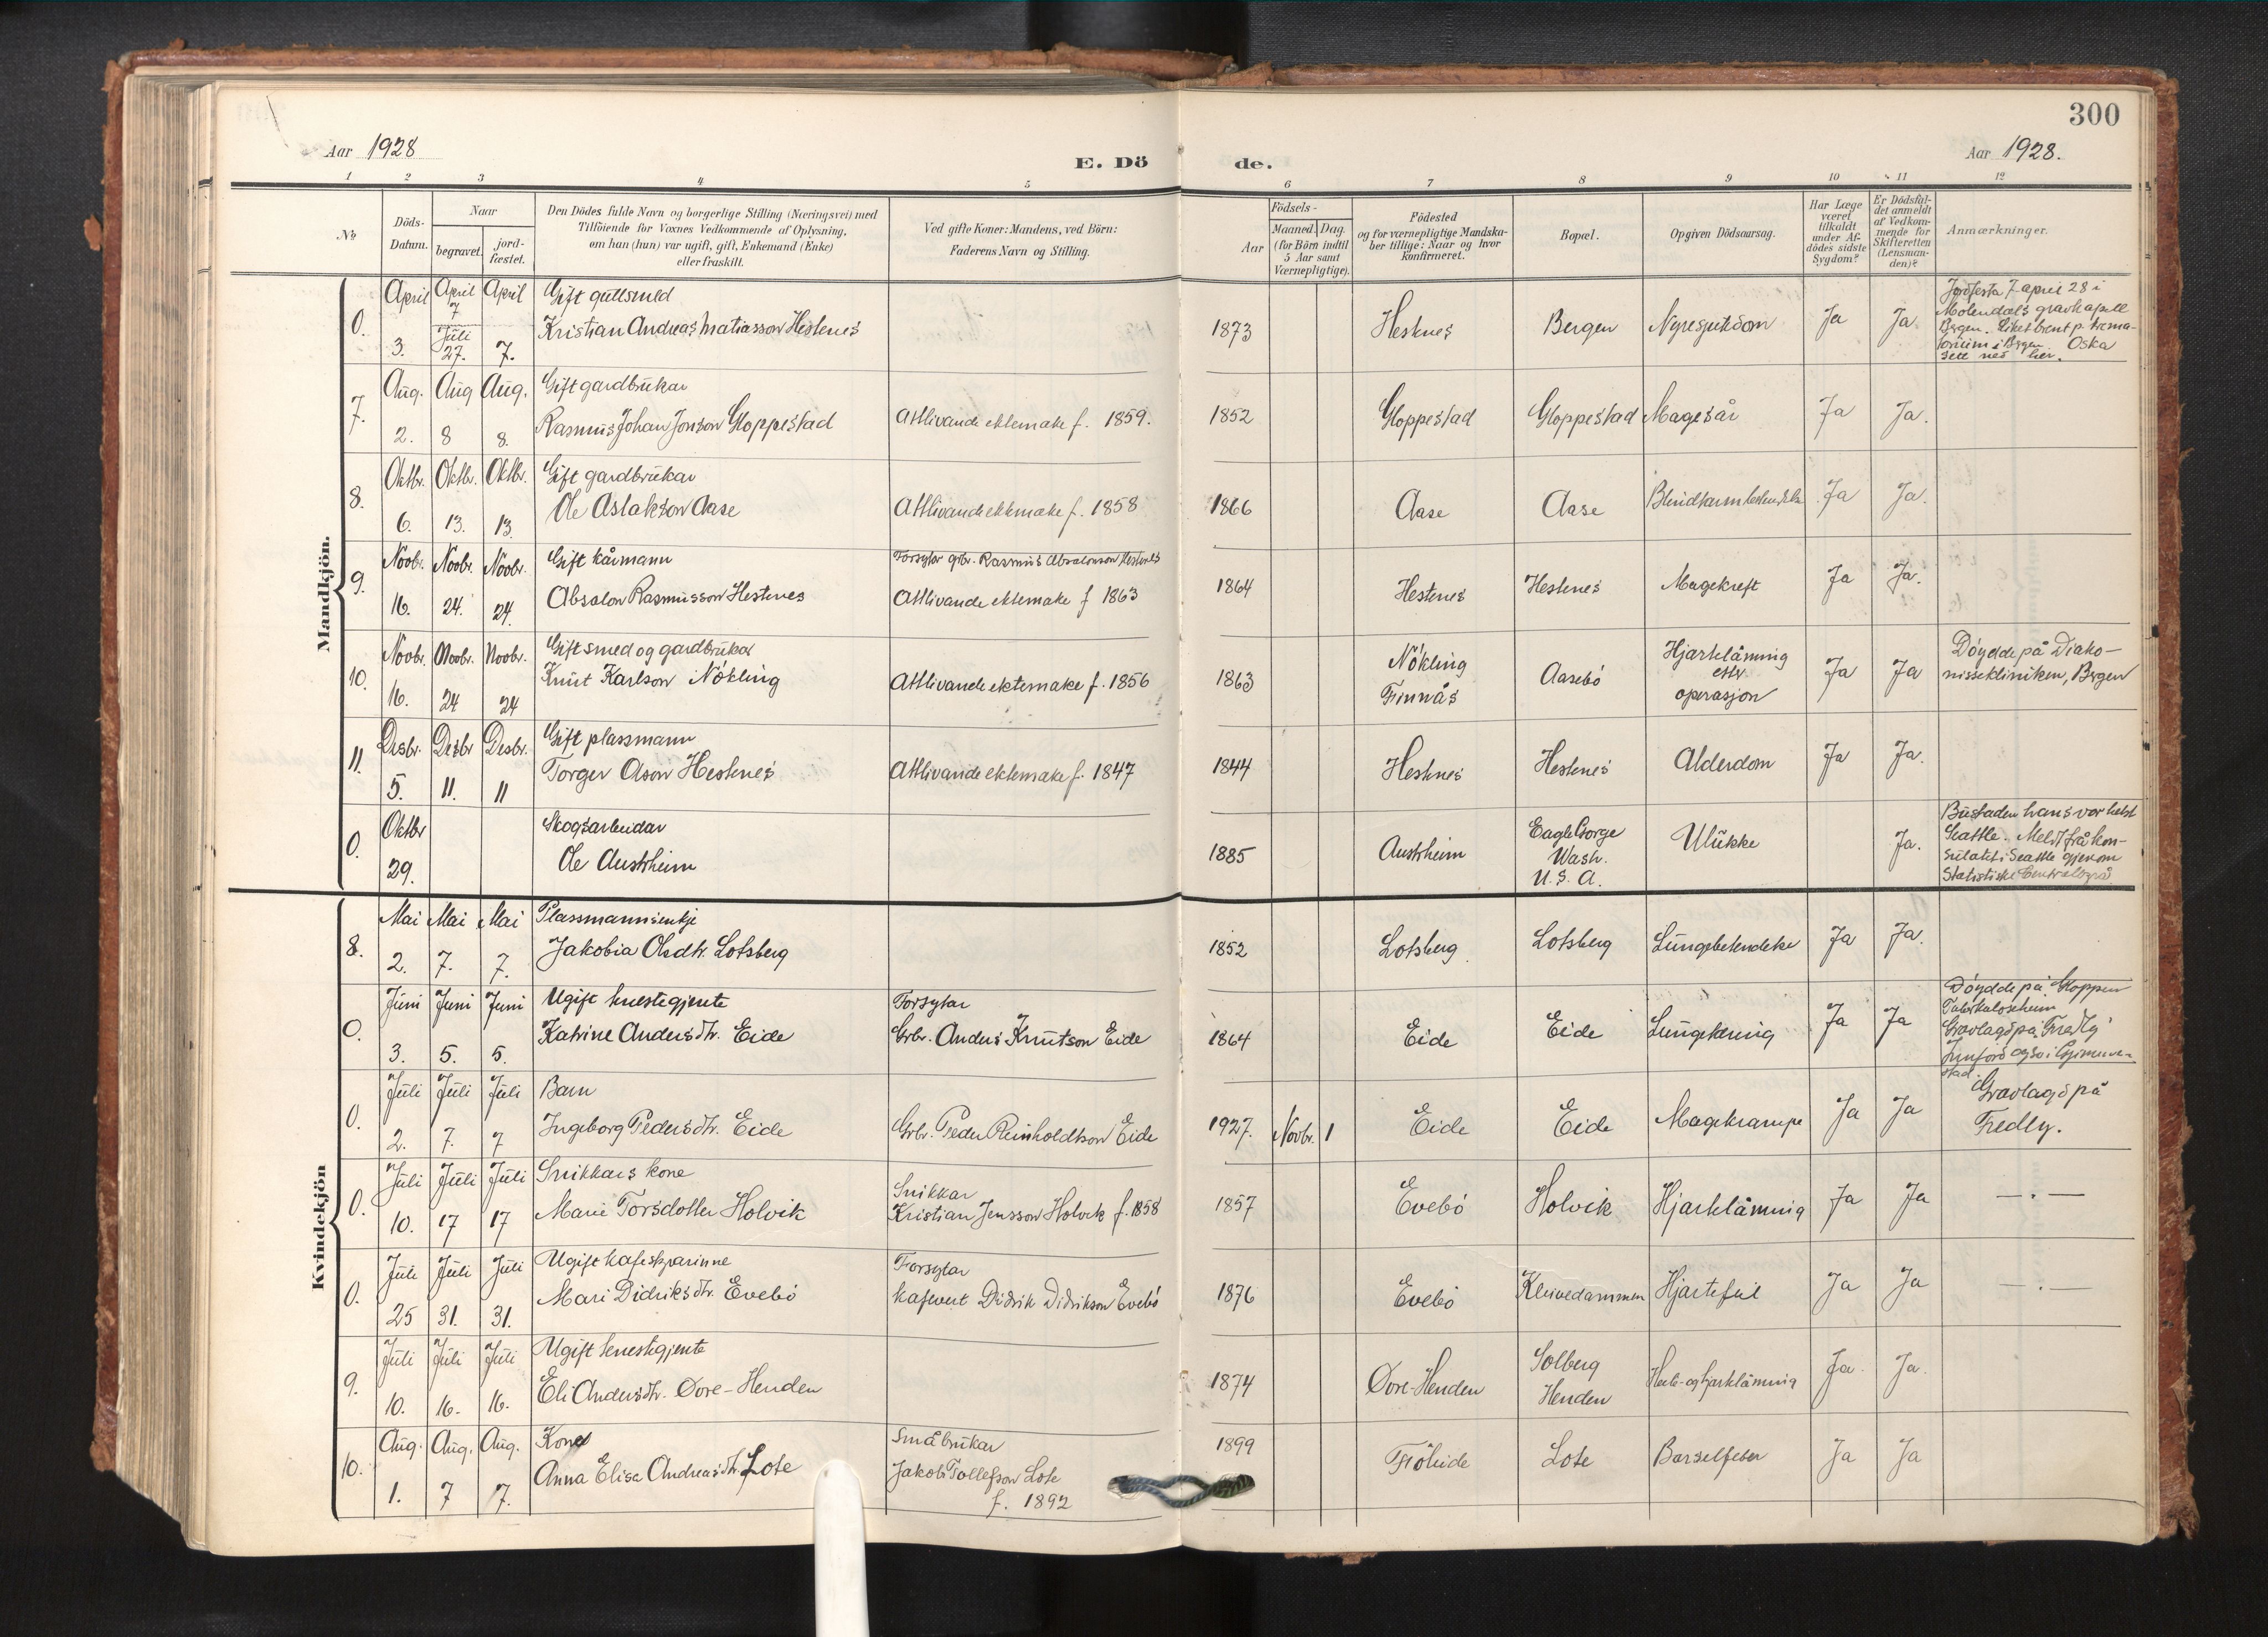 300
Aar 1928
E. Dö de.
Aar 1928.
1 2 3 4 5 6 7 8 9 10 11 12
№
Döds-Datum.
Naar
begravet. jord-fæstet.
Den Dödes fulde Navn og borgerlige Stilling (Næringsvei) med
Tilföiende for Voxnes Vedkommende af Oplysning,
om han (hun) var ugift, gift, Enkemand (Enke)
eller fraskilt.
Ved gifte Koner: Mandens, ved Börn:
Faderens Navn og Stilling.
Födsels-
Aar
Maaned. Dag.
(for Börn indtil
5 Aar samt
Værnepligtige).
Födested
og for værnepligtige Mandska-
ber tillige: Naar og hvor
konfirmeret.
Bopæl.
Opgiven Dödsaarsag.
Har Læge
været
tilkaldt
under Af-
dödes sidste
Sygdom?
Er Dödsfal-
det anmeldt
af Vedkom-
mende for
Skifteretten
(Lensman-
den)?
Anmærkninger.
Mandkjön.
0. April 3. April 7 Juli 27. April 7. Gift gullsmed
Kristian Andreas Matiasson Hestnes 1873 Hestnes Bergen Nyresjukdom Ja Ja.
Jordfesta 7 april 28 i
Mølendals gravkapell
Bergen. Liket brent p. krema-
torium i Bergen. Oska
sett ned her.
7. Aug. 2. Aug 8 Aug. 8. Gift gardbrukar
Rasmus Johan Jonson Gloppestad Attlivande ektemake f. 1859. 1852 Gloppestad Gloppestad Magesår Ja Ja.
8. Oktbr. 6. Oktbr. 13. Oktbr. 13. Gift gardbrukar
Ole Aslakson Aase Attlivande ektemake f. 1858 1866 Aase Aase Ja Ja.
9. Novbr. 16. Novbr. 24. Novbr. 24. Gift kårmann
Absalon Rasmusson Hestenes
Forsytar grbr. Rasmus Absalonson Hestenes
Attlivande ektemake f 1863 1864 Hestenes Hestenes Magekreft Ja Ja.
10. Novbr. 16. Novbr. 24 Novbr. 24 Gift smed og gardbrukar
Knut Karlson Nökling Attlivande ektemake f. 1856 1863 Nökling
Finnås Aasebö Hjartelåming
ettr.
operasjon Ja Ja
Döydde på Diako-
nisseklinikken, Bergen
11. Desbr. 5. Desbr 11. Desbr. 11 Gift plassmann
Torger Olson Hestenes Attlivande ektemake f. 1847 1844 Hestenes Hestenes Alderdom Ja Ja.
0. Oktbr 29. Skogsarbeidar
Ole Austrheim 1885 Austrheim Eagle Gorge
Wash.
U.S.A. Ulukke Ja.
Bustaden hans var helst
Seattle. Meldt frå kon-
sulatet i Seattle gjenom
Statistiske Centralbyrå
Kvindekjön
8. Mai 2. Mai 7. Mai 7. Plassmannsenkje
Jakobia Olsdtr. Lotsberg 1852 Lotsberg Lotsberg Lungebetendelse Ja Ja.
0. Juni 3. Juni 5. Juni 5. Ugift tenestegjente
Katrine Andersdtr. Eide Forsytar
Grbr. Anders Knutson Eide 1864 Eide Eide Lungetæring Ja Ja
Döydde på Gloppen
Tuberkuloseheim
Gravlagd på "Fredly"
Jmför også i Gjimme-
stad.
0. Juli 2. Juli 7. Juli 7 Barn
Ingeborg Pedersdtr. Eide Grbr. Peder Reinholdtson Eide 1927. Novbr. 1 Eide Eide Magekrampe Ja Ja
Gravlagd på
Fredly.
0. Juli 10. Juli 17 Juli 17 Snikkars kone
Marie Torsdotter Holvik Snikkar
Kristian Jensson Holvik f. 1858 1857 Evebö Holvik Hjartelåming Ja Ja — . —
0. Juli 25 Juli 31. Juli 31. Ugift kafeskjarinne
Mari Didriksdtr. Evebö Forsytar
kafevert Didrik Didrikson Evebö 1876 Evebö Kleivedammen Hjartefeil Ja Ja — . —
9. Juli 10. Juli 16. Juli 16. Ugift tenestegjente
Eli Andersdtr. Övre-Henden 1874 Övre-Henden Solberg
Henden Ja. Ja.
10. Aug. 1. Aug. 7 Aug. 7. Kone
Anna Elisa Andreasdtr. Lote Småbrukar
Jakob Tollefson Lote
f. 1892 1899 Fröheide Lote Barselfeber Ja Ja